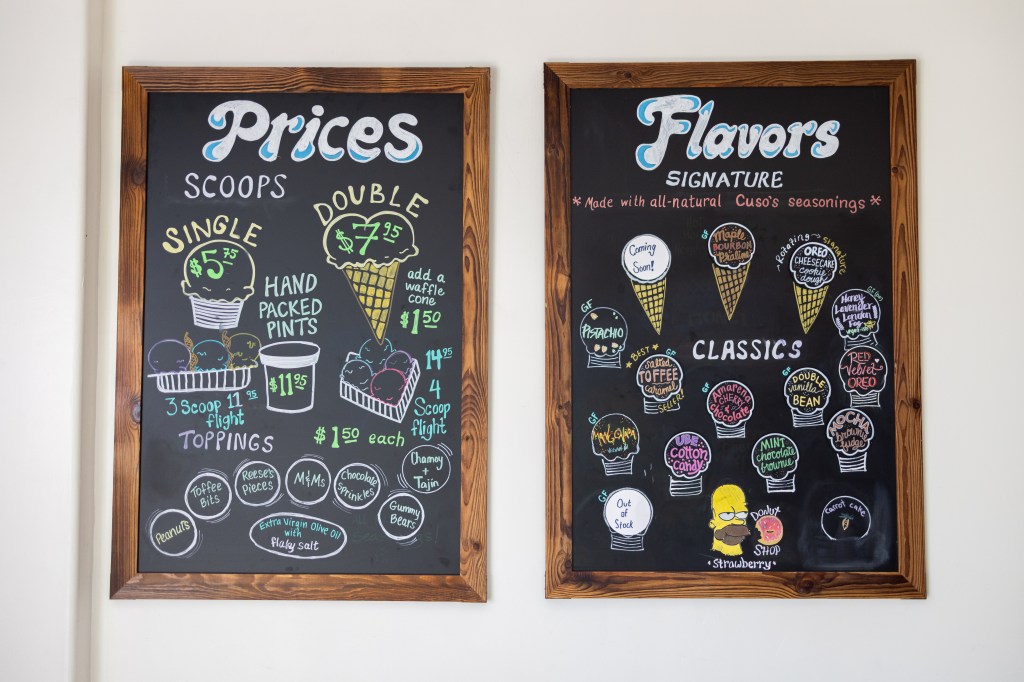 Prices
SCOOPS
SINGLE
$5.75
DOUBLE
$7.95
add a
waffle
cone
$1.50
HAND
PACKED
PINTS
$11.95
3 Scoop 11.95
flight
14.95
4
Scoop
flight
TOPPINGS
$1.50 each
Peanuts
Toffee
Bits
Reese's
Pieces
M&Ms
Chocolate
Sprinkles
Chamoy
+
Tajín
Gummy
Bears
Extra Virgin Olive Oil
with
flaky salt
Flavors
SIGNATURE
*Made with all-natural Cuso's seasonings*
Coming
Soon!
GF
Maple
BOURBON
Praline
Rotating Signature
OREO
CHEESECAKE
cookie
dough
Honey
Lavender
London
Fog
GF
PISTACHIO
CLASSICS
*BEST*
SELLER
GF
Salted
TOFFEE
caramel
GF
Amarena
CHERRY
chocolate
GF
DOUBLE
vanilla
BEAN
RED
Velvet
OREO
GF
UBE
cotton
candy
MINT
chocolate
brownie
MOCHA
brownie
fudge
GF
Out
of
Stock
Donut
SHOP
*Strawberry*
Carrot cake